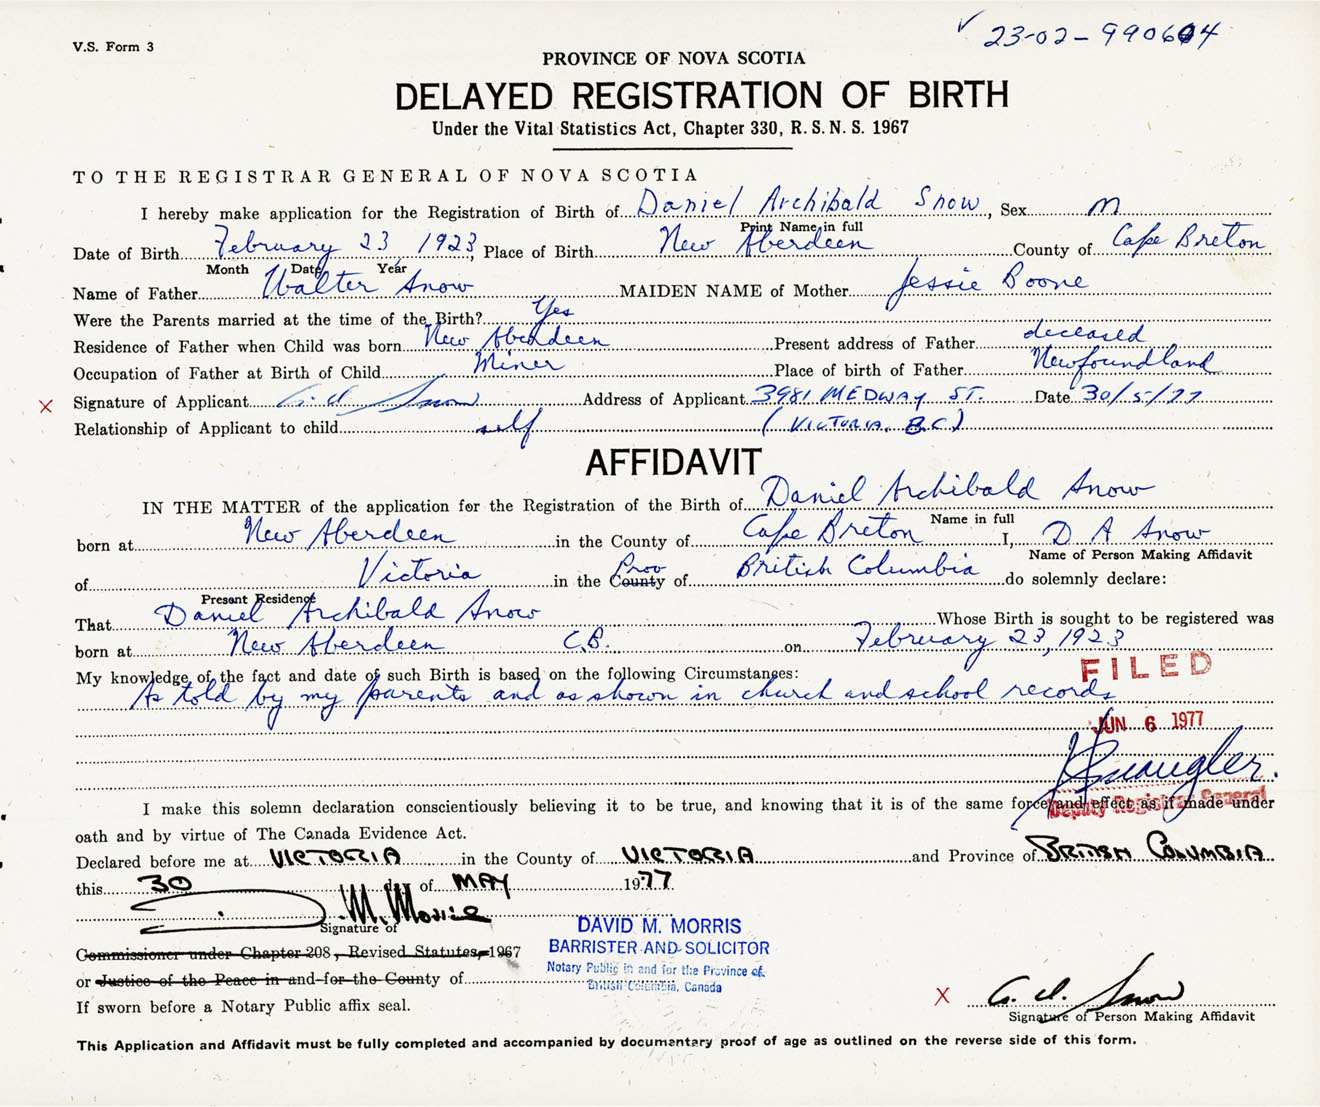 V.S. Form 3
✓ 23-02-990604
PROVINCE OF NOVA SCOTIA
DELAYED REGISTRATION OF BIRTH
Under the Vital Statistics Act, Chapter 330, R.S.N.S. 1967
TO THE REGISTRAR GENERAL OF NOVA SCOTIA
I hereby make application for the Registration of Birth of Daniel Archibald Snow, Sex M
Print Name in full
Date of Birth February 23 1923, Place of Birth New Aberdeen County of Cape Breton
Month Date Year
Name of Father Walter Snow MAIDEN NAME of Mother Jessie Boone
Were the Parents married at the time of the Birth? Yes
Residence of Father when Child was born New Aberdeen Present address of Father deceased
Occupation of Father at Birth of Child Miner Place of birth of Father Newfoundland
X Signature of Applicant Snow Address of Applicant 3981 MEDWAY ST. Date 30/5/77
Relationship of Applicant to child self (VICTORIA, B.C)
AFFIDAVIT
IN THE MATTER of the application for the Registration of the Birth of Daniel Archibald Snow
Name in full
born at New Aberdeen in the County of Cape Breton I, D A Snow
Name of Person Making Affidavit
of Victoria in the County Prov of British Columbia do solemnly declare:
Present Residence
That Daniel Archibald Snow Whose Birth is sought to be registered was
born at New Aberdeen C.B. on February 23, 1923
My knowledge of the fact and date of such Birth is based on the following Circumstances:
As told by my parents and as shown in church and school records
FILED
JUN 6 1977
Deputy Registrar General
I make this solemn declaration conscientiously believing it to be true, and knowing that it is of the same force and effect as if made under
oath and by virtue of The Canada Evidence Act.
Declared before me at VICTORIA in the County of VICTORIA and Province of BRITISH COLUMBIA
this 30 day of MAY 1977.
D. M. Morris
Signature of
Commissioner under Chapter 208, Revised Statutes, 1967
or Justice of the Peace in and for the County of
If sworn before a Notary Public affix seal.
DAVID M. MORRIS
BARRISTER AND SOLICITOR
Notary Public in and for the Province of
British Columbia, Canada
X Snow
Signature of Person Making Affidavit
This Application and Affidavit must be fully completed and accompanied by documentary proof of age as outlined on the reverse side of this form.